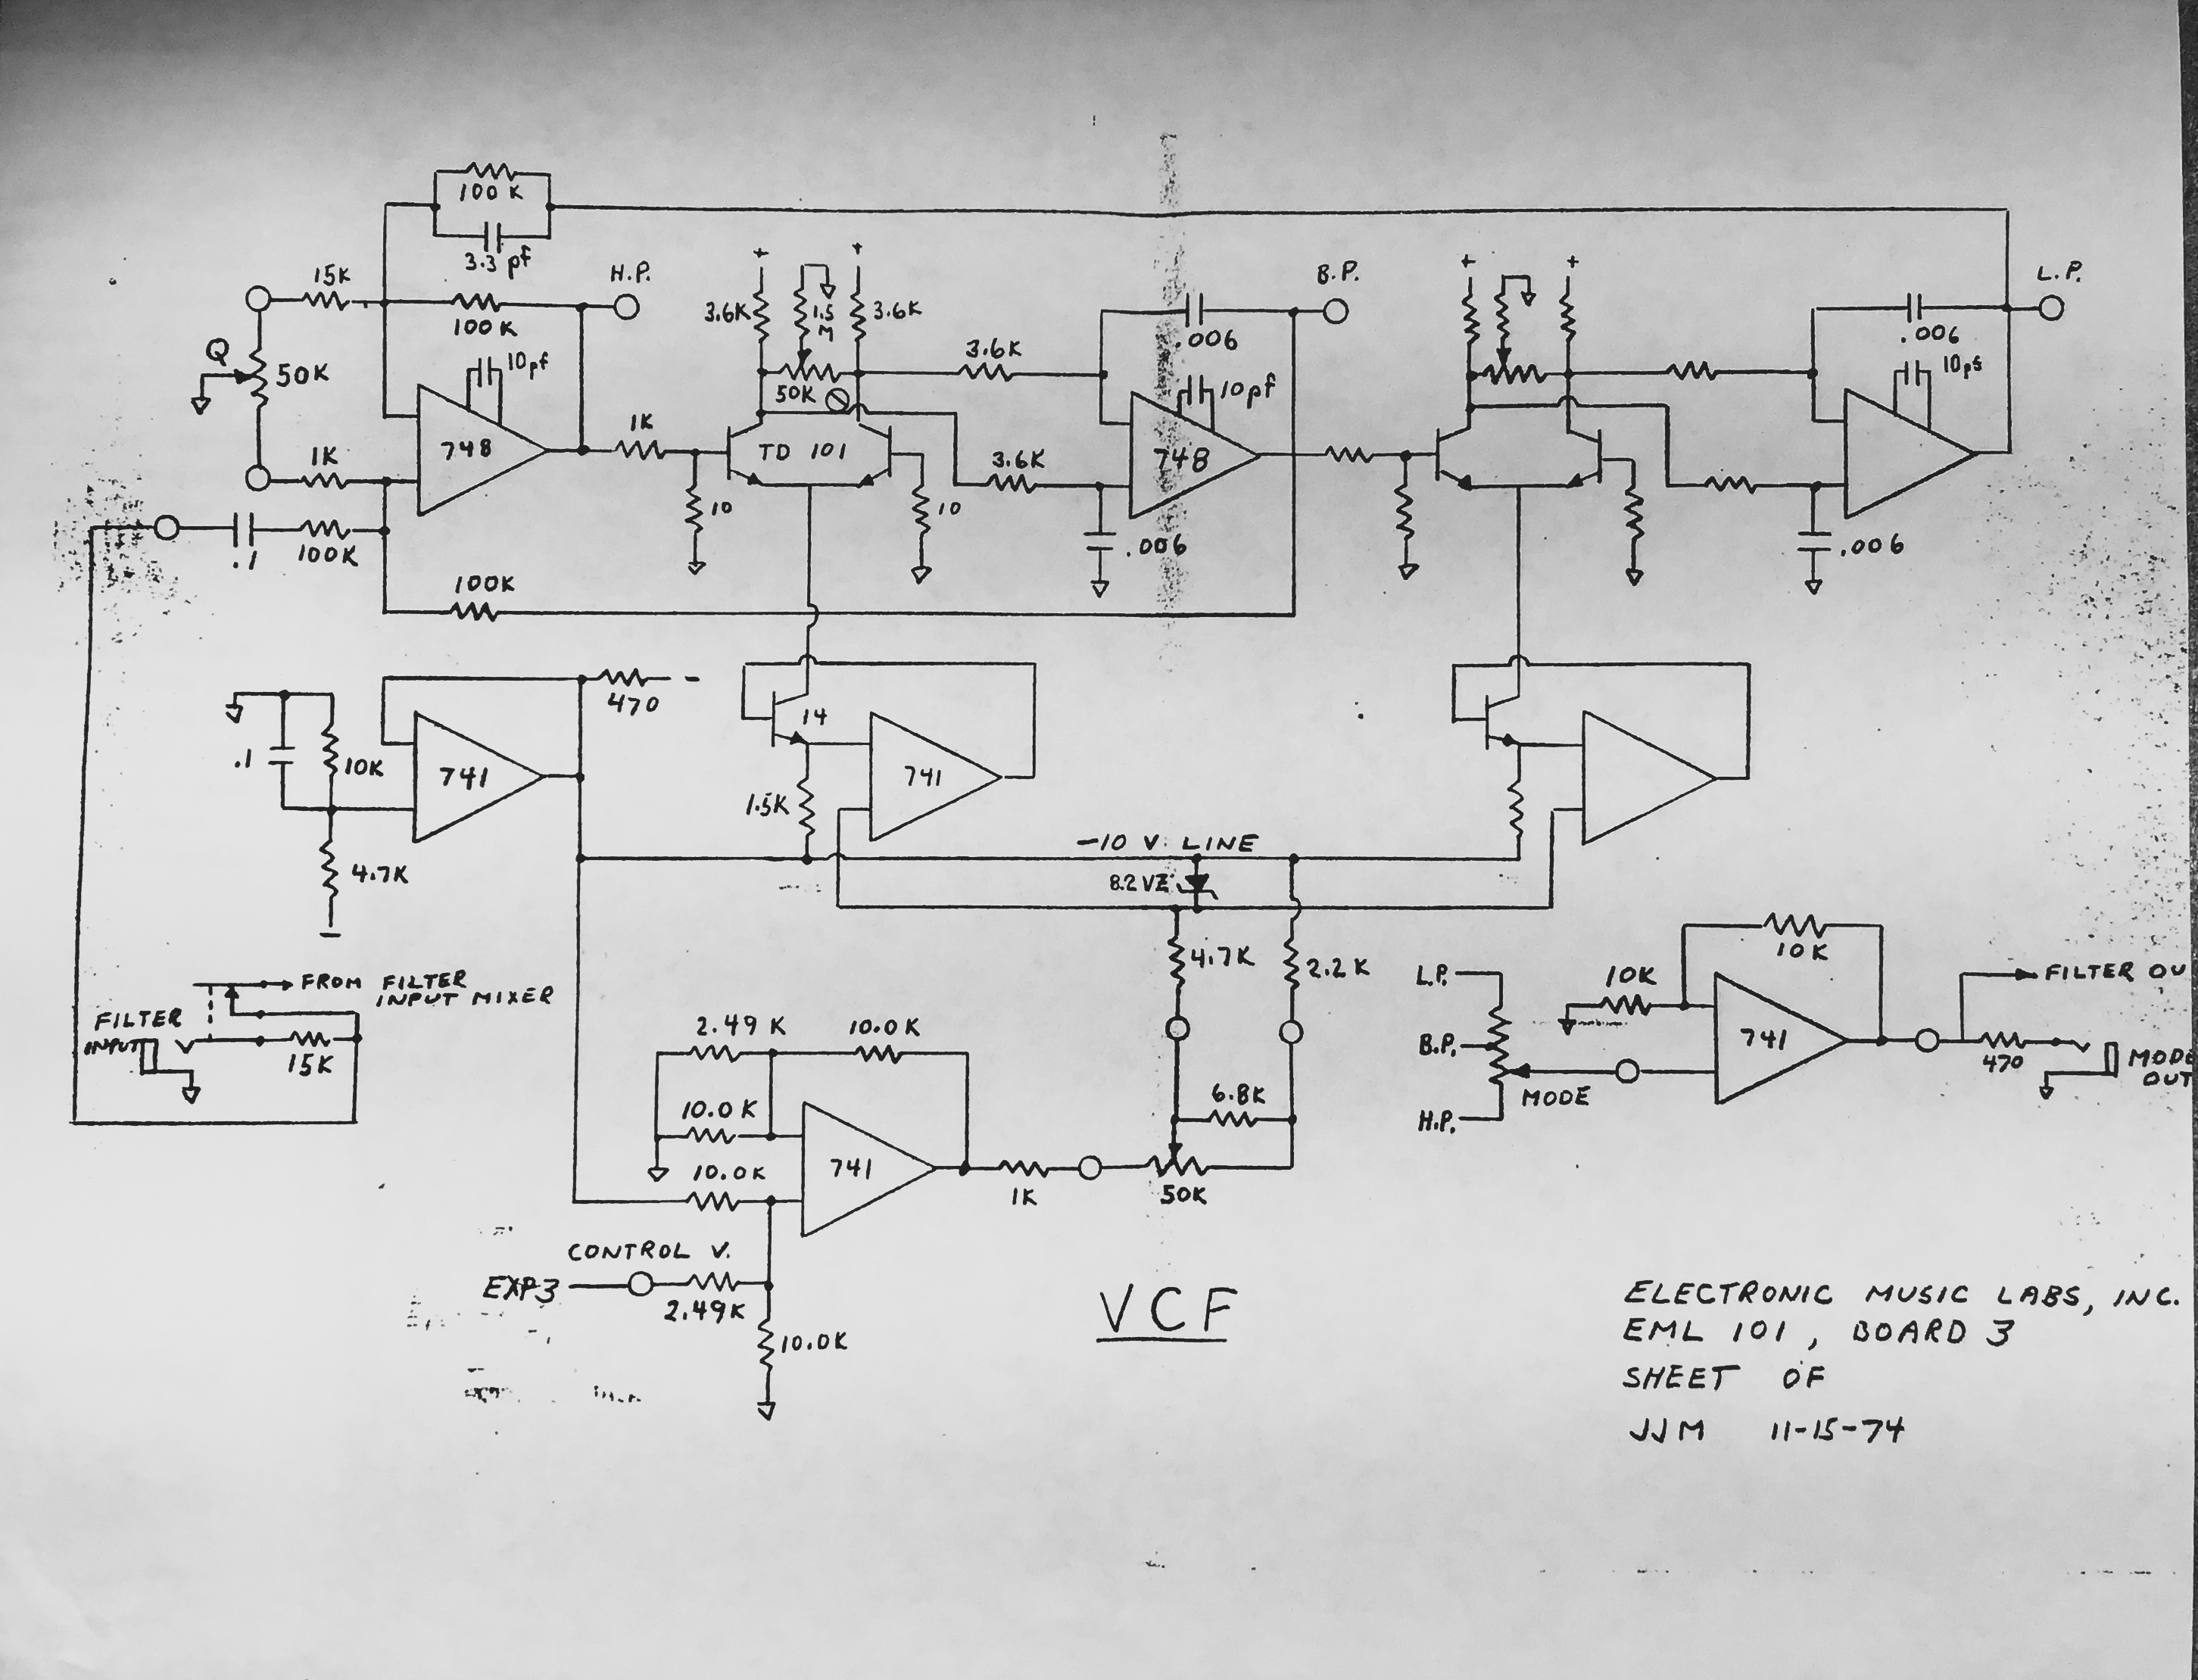 100 K
3.3 pf
15K
H.P.
100K
10pf
Q
50K
748
1K
1K
.1
100K
100K
+
+
3.6K
1.5
M
3.6K
50K
TD 101
10
10
3.6K
3.6K
B.P.
.006
10pf
748
.006
+
+
L.P.
.006
10pf
.006
470
-
.1
10K
741
4.7K
-
14
1.5K
741
-10 V. LINE
8.2VZ
4.7K
2.2K
6.8K
50K
FROM FILTER
INPUT MIXER
FILTER
INPUT
15K
2.49 K
10.0K
10.0K
10.0K
741
1K
CONTROL V.
EXP3
2.49K
10.0K
L.P.
B.P.
H.P.
MODE
10K
10K
741
FILTER OU
470
MODE
OUT
VCF
ELECTRONIC MUSIC LABS, INC.
EML 101, BOARD 3
SHEET OF
JJM 11-15-74